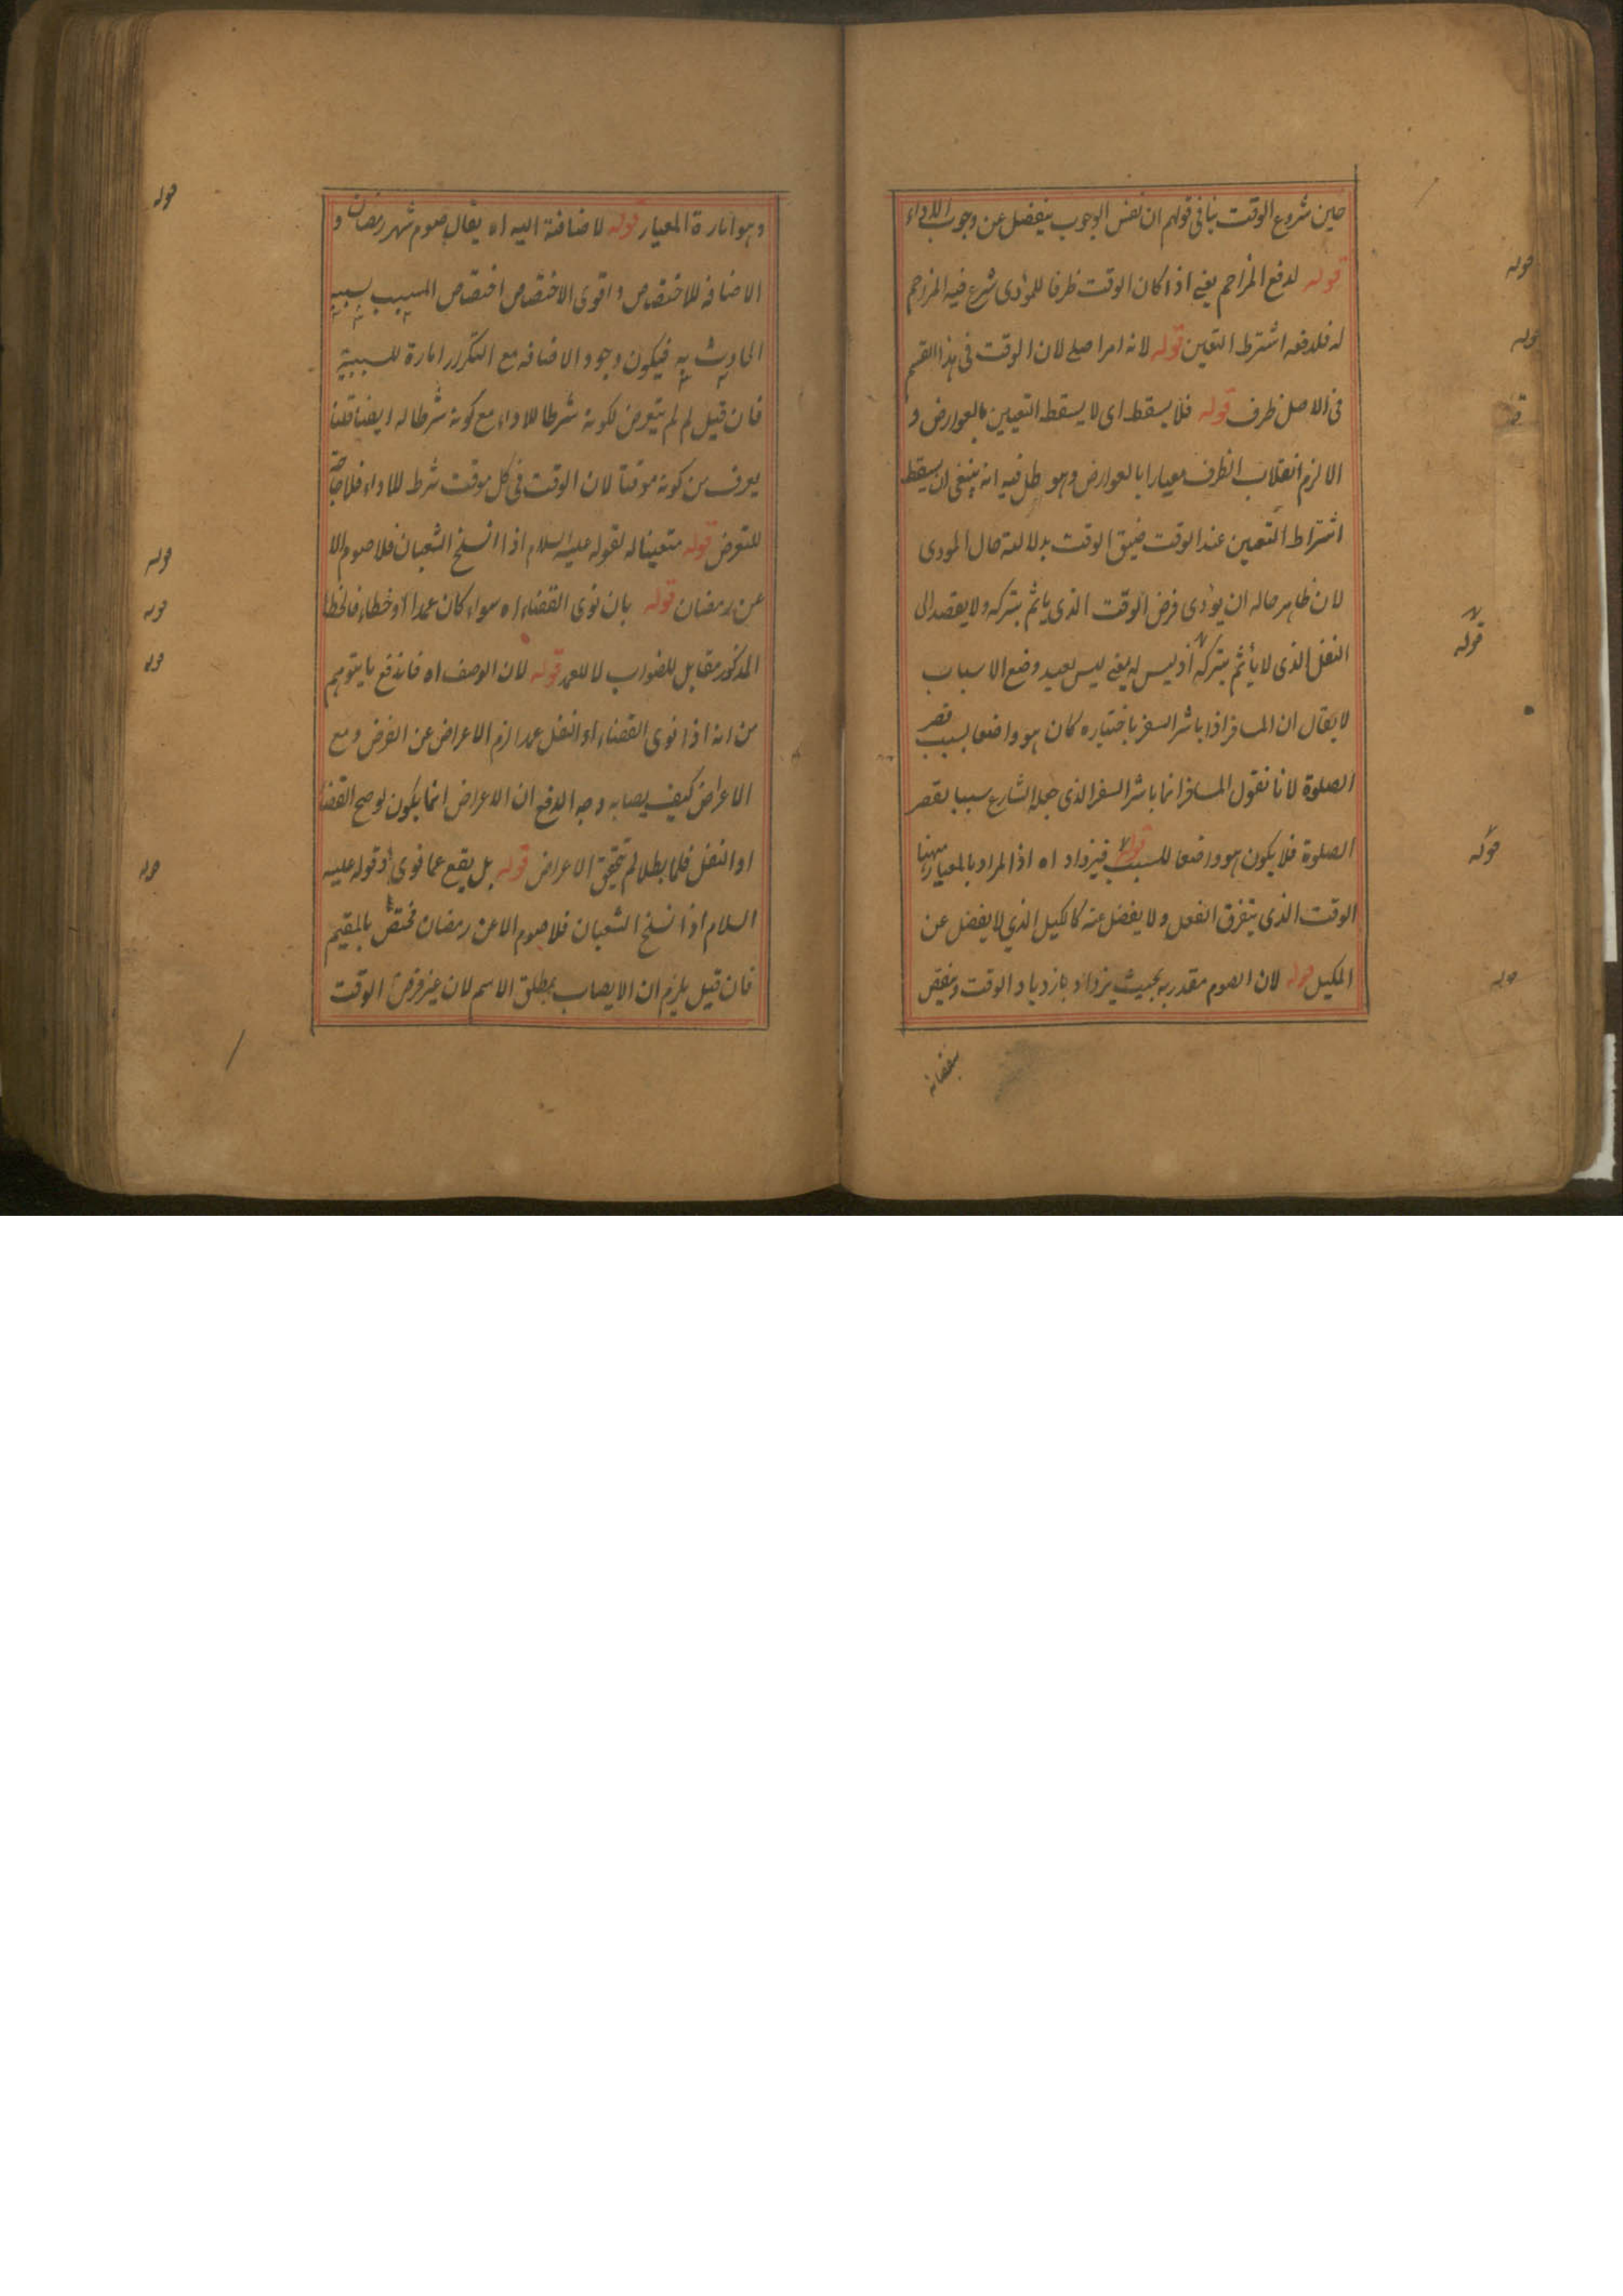 حين شروع الوقت ينافى قولهم ان نفس الوجوب ينفصل عن وجوب الاداء
قوله لدفع المزاحم يعنى اذا كان الوقت ظرفا للمؤدى شرع فيه المزاحم
له فلدفعه اشترط التعين قوله لانه امر اصلى لان الوقت فى هذا القسم
فى الاصل ظرف قوله فلا يسقط اى لا يسقط التعيين بالعوارض و
الا لزم انقلاب الظرف معيارا بالعوارض وهو باطل فيه انه ينبغى ان يسقط
اشتراط التعين عند الوقت ضيق الوقت بدلالة حال المودى
لان ظاهر حاله ان يؤدى فرض الوقت الذى يأثم بتركه ولا يقصد الى
النفل الذى لا يأثم بتركه اذ ليس له يعنى ليس بعيد وضع الاسباب
لا يقال ان المسافر اذا باشر السفر باختياره كان هو واضعا لسبب قصر
الصلوة لانا نقول المسافر انما باشر السفر الذى جعله الشارع سببا لقصر
الصلوة فلا يكون هو واضعا للسبب قوله فيزداد اه اذ المراد بالمعيار ههنا
الوقت الذى يتفرق الفعل ولا يفضل عنه كالكيل الذي لا يفضل عن
المكيل قوله لان الصوم مقدر به بحيث يزداد بازدياد الوقت وينقص
بنقصانه
وهو امارة المعيار قوله لاضافته اليه اه يقال صوم شهر رمضان و
الاضافه للاختصاص واقوى الاختصاص اختصاص المسبب بسببه
الحادث به فيكون وجود الاضافه مع التكرر امارة للسببية
فان قيل لم لم يتعرض لكونه شرطا للاداء مع كونه شرطا له ايضا قلنا
يعرف من كونه موقتا لان الوقت فى كل موقت شرط للاداء فلا حاجة
للتعرض قوله متعينا له لقوله عليه السلام اذا انسلخ الشعبان فلا صوم الا
عن رمضان قوله بان نوى القضاء اه سواء كان عمدا او خطاء فالخطا
المذكور مقابل للصواب لا للعمد قوله لان الوصف اه فاندفع ما يتوهم
من انه اذا نوى القضاء او النفل عمدا لزم الاعراض عن الفرض ومع
الاعراض كيف يصابه وجه الدفع ان الاعراض انما يكون لو صح القضا
او النفل فلما بطلا لم يتحقق الاعراض قوله بل يقع عما نوى اذ قوله عليه
السلام اذا انسلخ الشعبان فلا صوم الا عن رمضان مختص بالمقيم
فان قيل يلزم ان لا يصاب بمطلق الاسم لان غير فرض الوقت
قوله
قوله
قوله
قوله
قوله
قوله
قوله
قوله
قوله
قوله